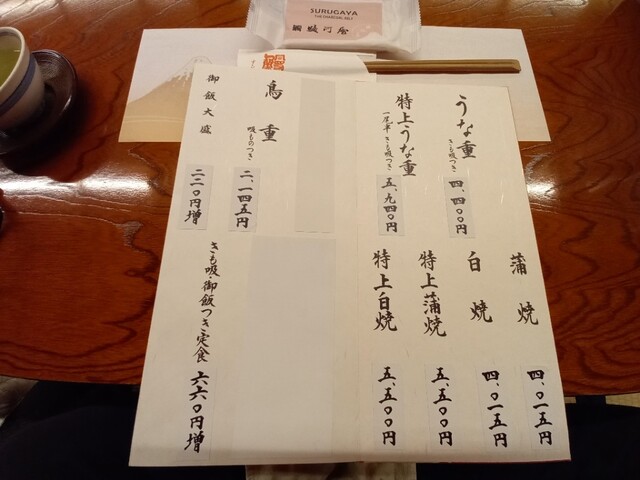 SURUGAYA
駿河屋
うな重
きも吸つき
四、四〇〇円
特上うな重
一尾半・きも吸つき
五、九四〇円
蒲焼
四、〇一五円
白焼
四、〇一五円
特上蒲焼
五、五〇〇円
特上白焼
五、五〇〇円
鳥重
吸ものつき
二、一四五円
御飯大盛
二二〇円増
きも吸・御飯つき定食
六六〇円増